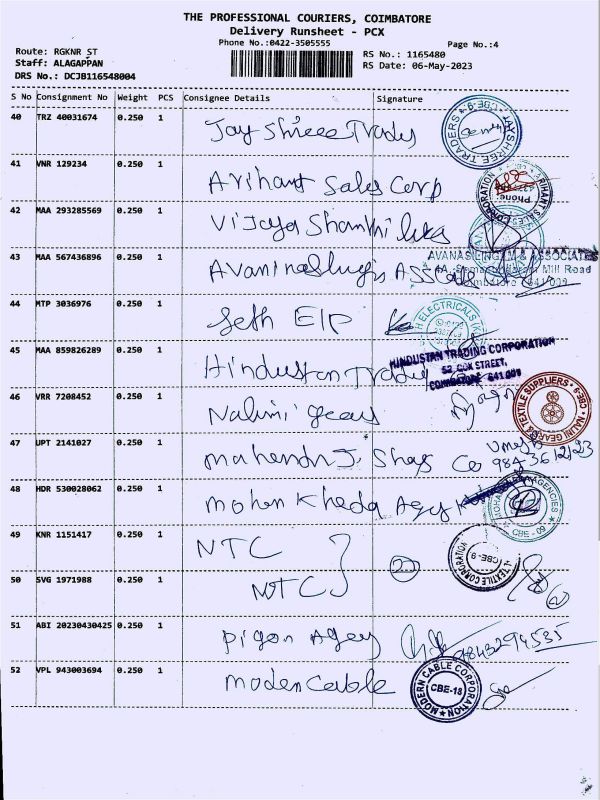 THE PROFESSIONAL COURIERS, COIMBATORE
Delivery Runsheet - PCX
Phone No.:0422-3505555
Page No.:4
Route: RGKNR ST
RS No.: 1165480
Staff: ALAGAPPAN
RS Date: 06-May-2023
DRS No.: DCJB116548004
S No Consignment No Weight PCS Consignee Details Signature
40 TRZ 40031674 0.250 1 Jay Shree Trades JAYSHREE TRADERS CBE-9
41 VNR 129234 0.250 1 Arihant Sales Corp ARIHANT SALES CORPORATION Phone
42 MAA 293285569 0.250 1 Vijaya Shanthi
43 MAA 567436896 0.250 1 AVANASILINGAM & ASSOCIATES
Mill Road
Coimbatore 641 009
44 MTP 3036976 0.250 1 Seth Elp ELECTRICALS
45 MAA 859826289 0.250 1 Hindustan Trading HINDUSTAN TRADING CORPORATION
52, COX STREET,
COIMBATORE 641 001
46 VRR 7208452 0.250 1 Nalini gears NALINI GEAR & TEXTILE SUPPLIERS CBE-9
47 UPT 2141027 0.250 1 Mahendra J. Shag Co Umesh
48 HDR 530028062 0.250 1 Mohan Kheda Agey MOHAN AGENCIES CBE
49 KNR 1151417 0.250 1 NTC TEXTILE CORPORATION CBE-9
50 SVG 1971988 0.250 1 NTC
51 ABI 20230430425 0.250 1 Pigon Agey 9843294535
52 VPL 943003694 0.250 1 Moden Cable MODERN CABLE CORPORATION CBE-18